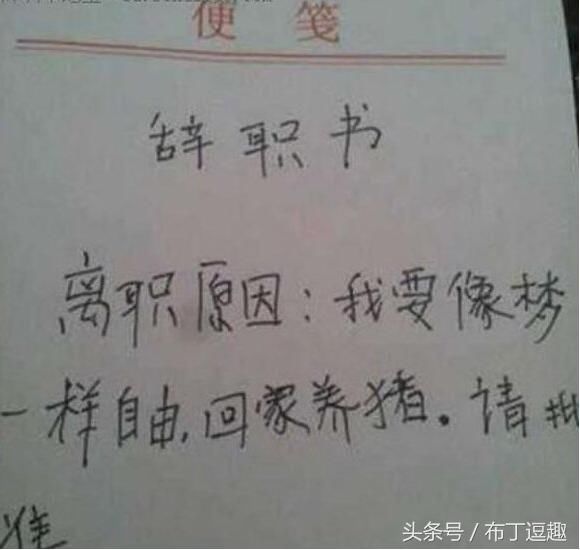 便笺
辞职书
离职原因：我要像梦
一样自由，回家养猪。请批
准
头条号／布丁逗趣